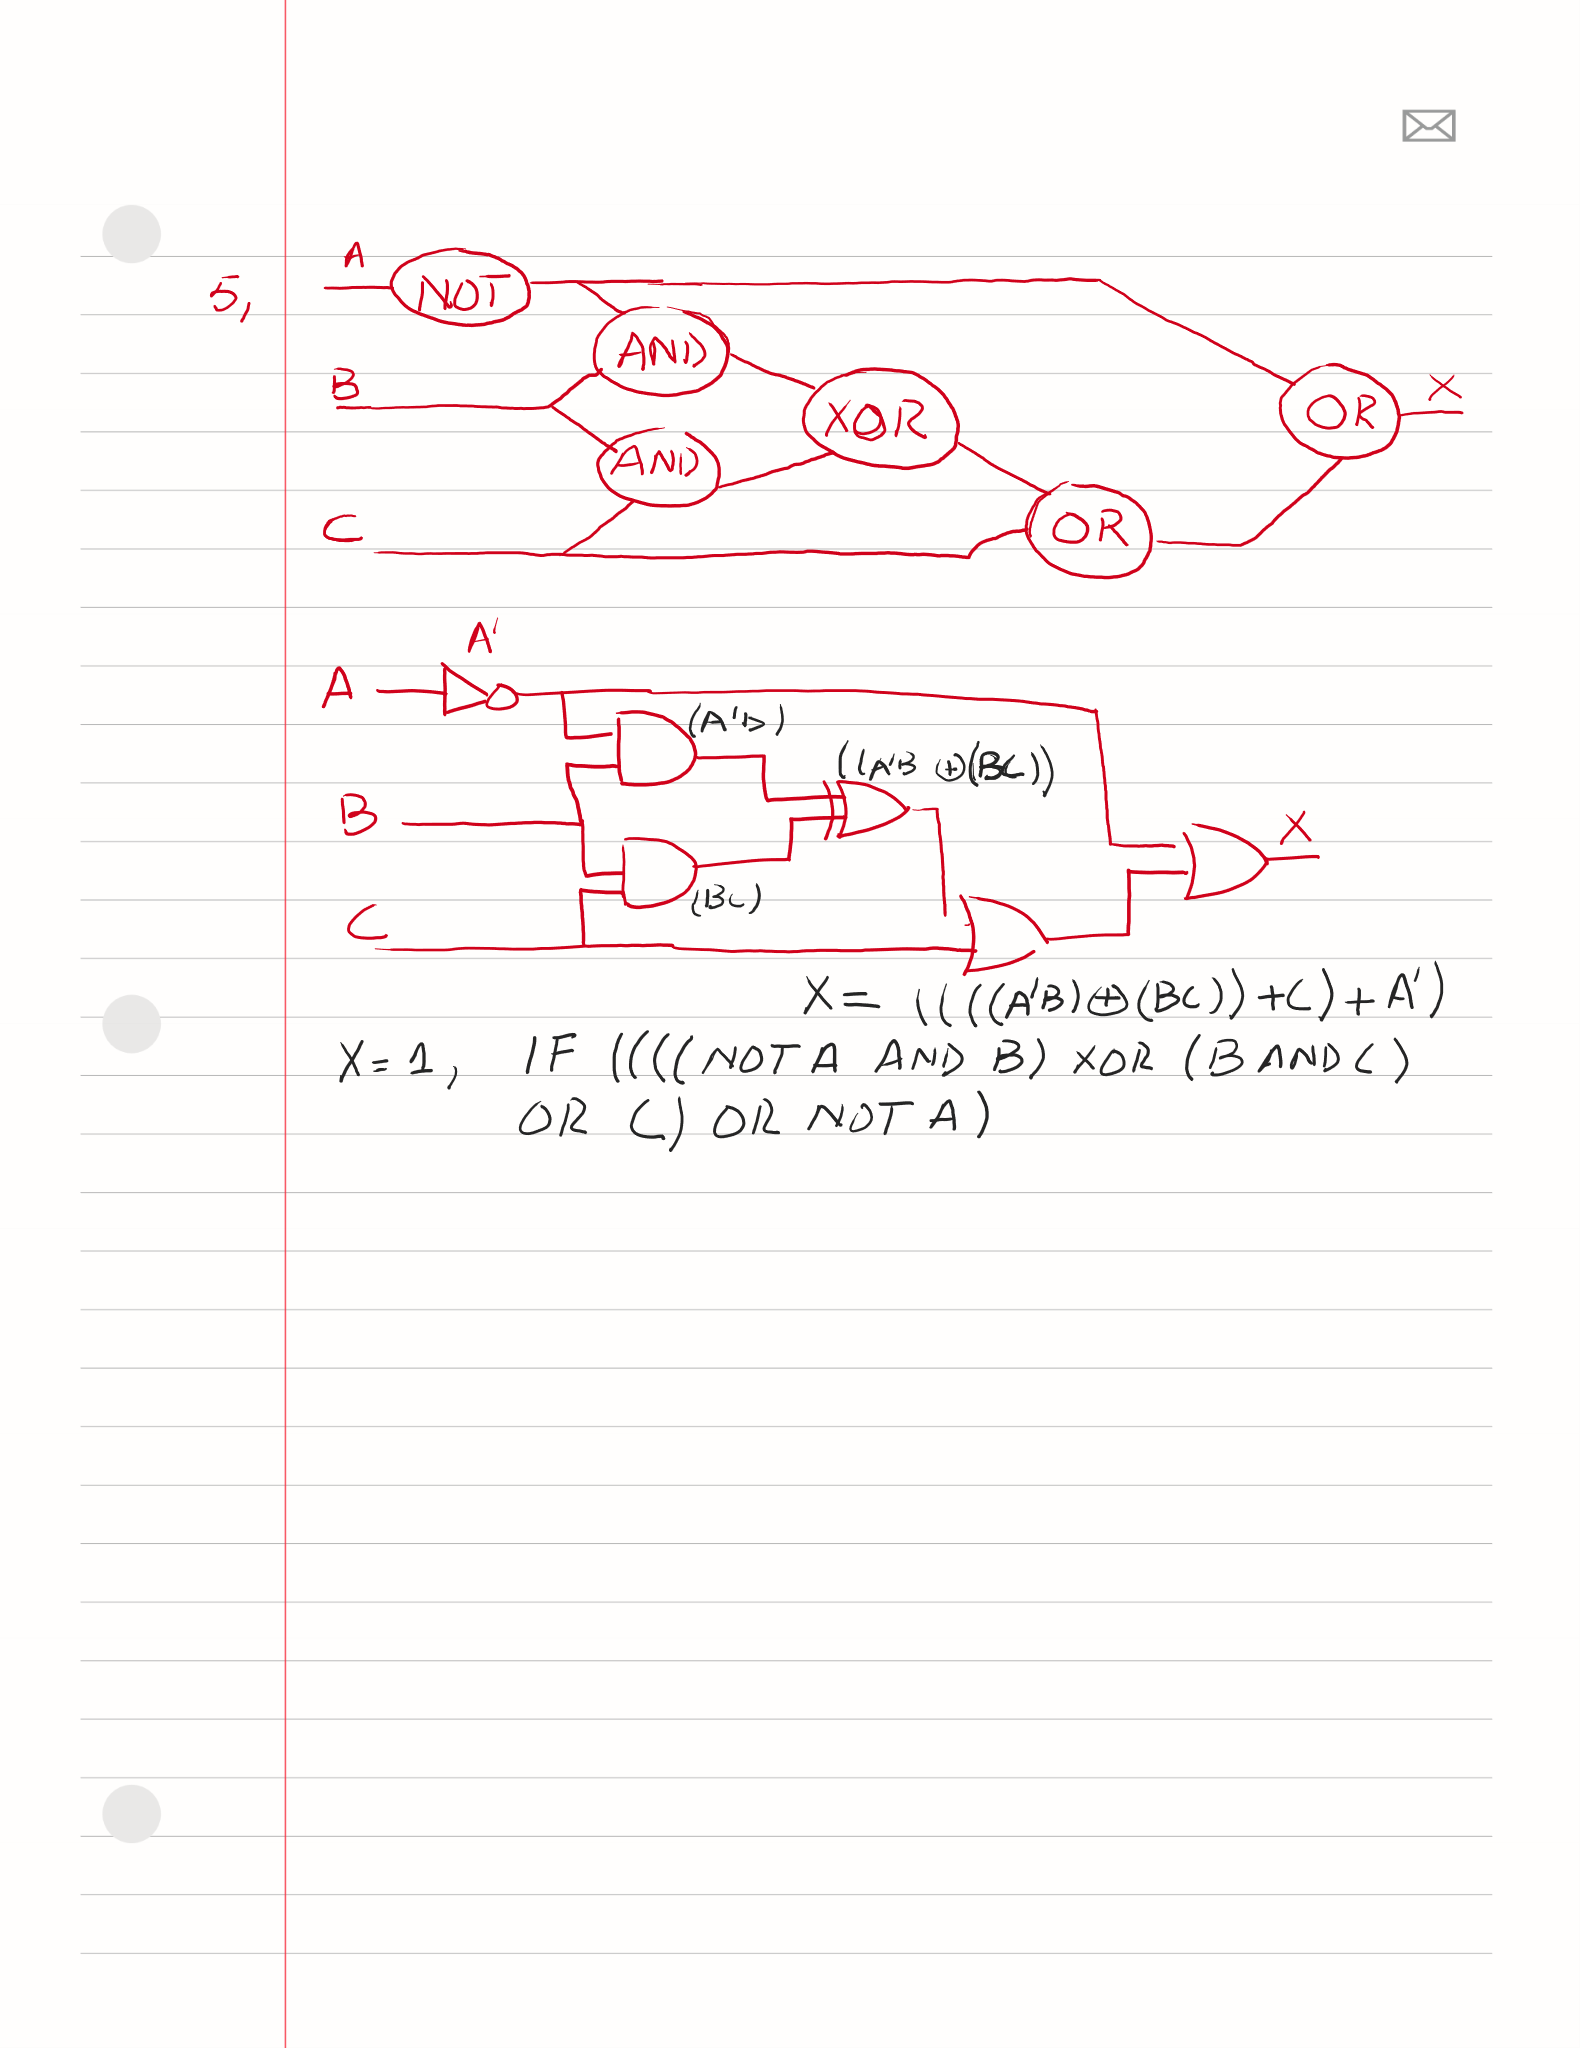 5,
A
NOT
AND
B
XOR
X
OR
AND
C
OR
A'
A
((A'B ⊕(BC))
B
X
(BC)
C
X= ((((A'B)⊕(BC))+C)+A')
X=1, IF ((((NOT A AND B) XOR (B AND C)
OR C) OR NOT A)